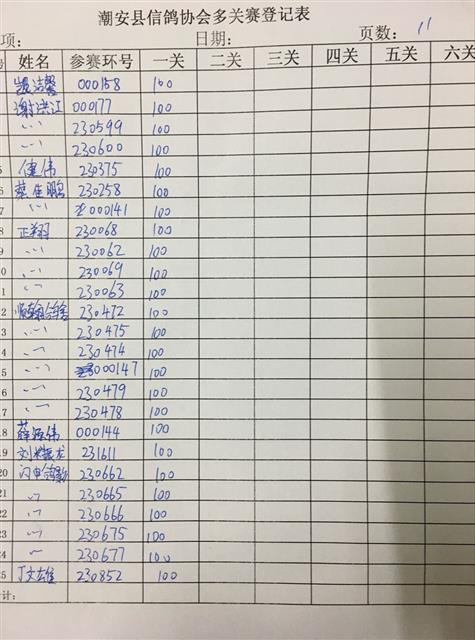 潮安县信鸽协会多关赛登记表
项: 日期: 页数: 11
号 姓名 参赛环号 一关 二关 三关 四关 五关 六关
000158 100
谢洪江 000177 100
〃 230599 100
〃 230600 100
5 健伟 230375 100
6 蔡生鹏 230258 100
7 〃 000141 100
8 正翔 230068 100
9 〃 230062 100
0 〃 230069 100
1 〃 230063 100
2 230472 100
3 〃 230475 100
4 〃 230474 100
5 〃 000147 100
6 〃 230479 100
7 〃 230478 100
18 伟 000144 100
19 刘 龙 231611 100
20 闪电 230662 100
21 〃 230665 100
22 〃 230666 100
23 〃 230675 100
24 〃 230677 100
25 丁文雄 230852 100
计: